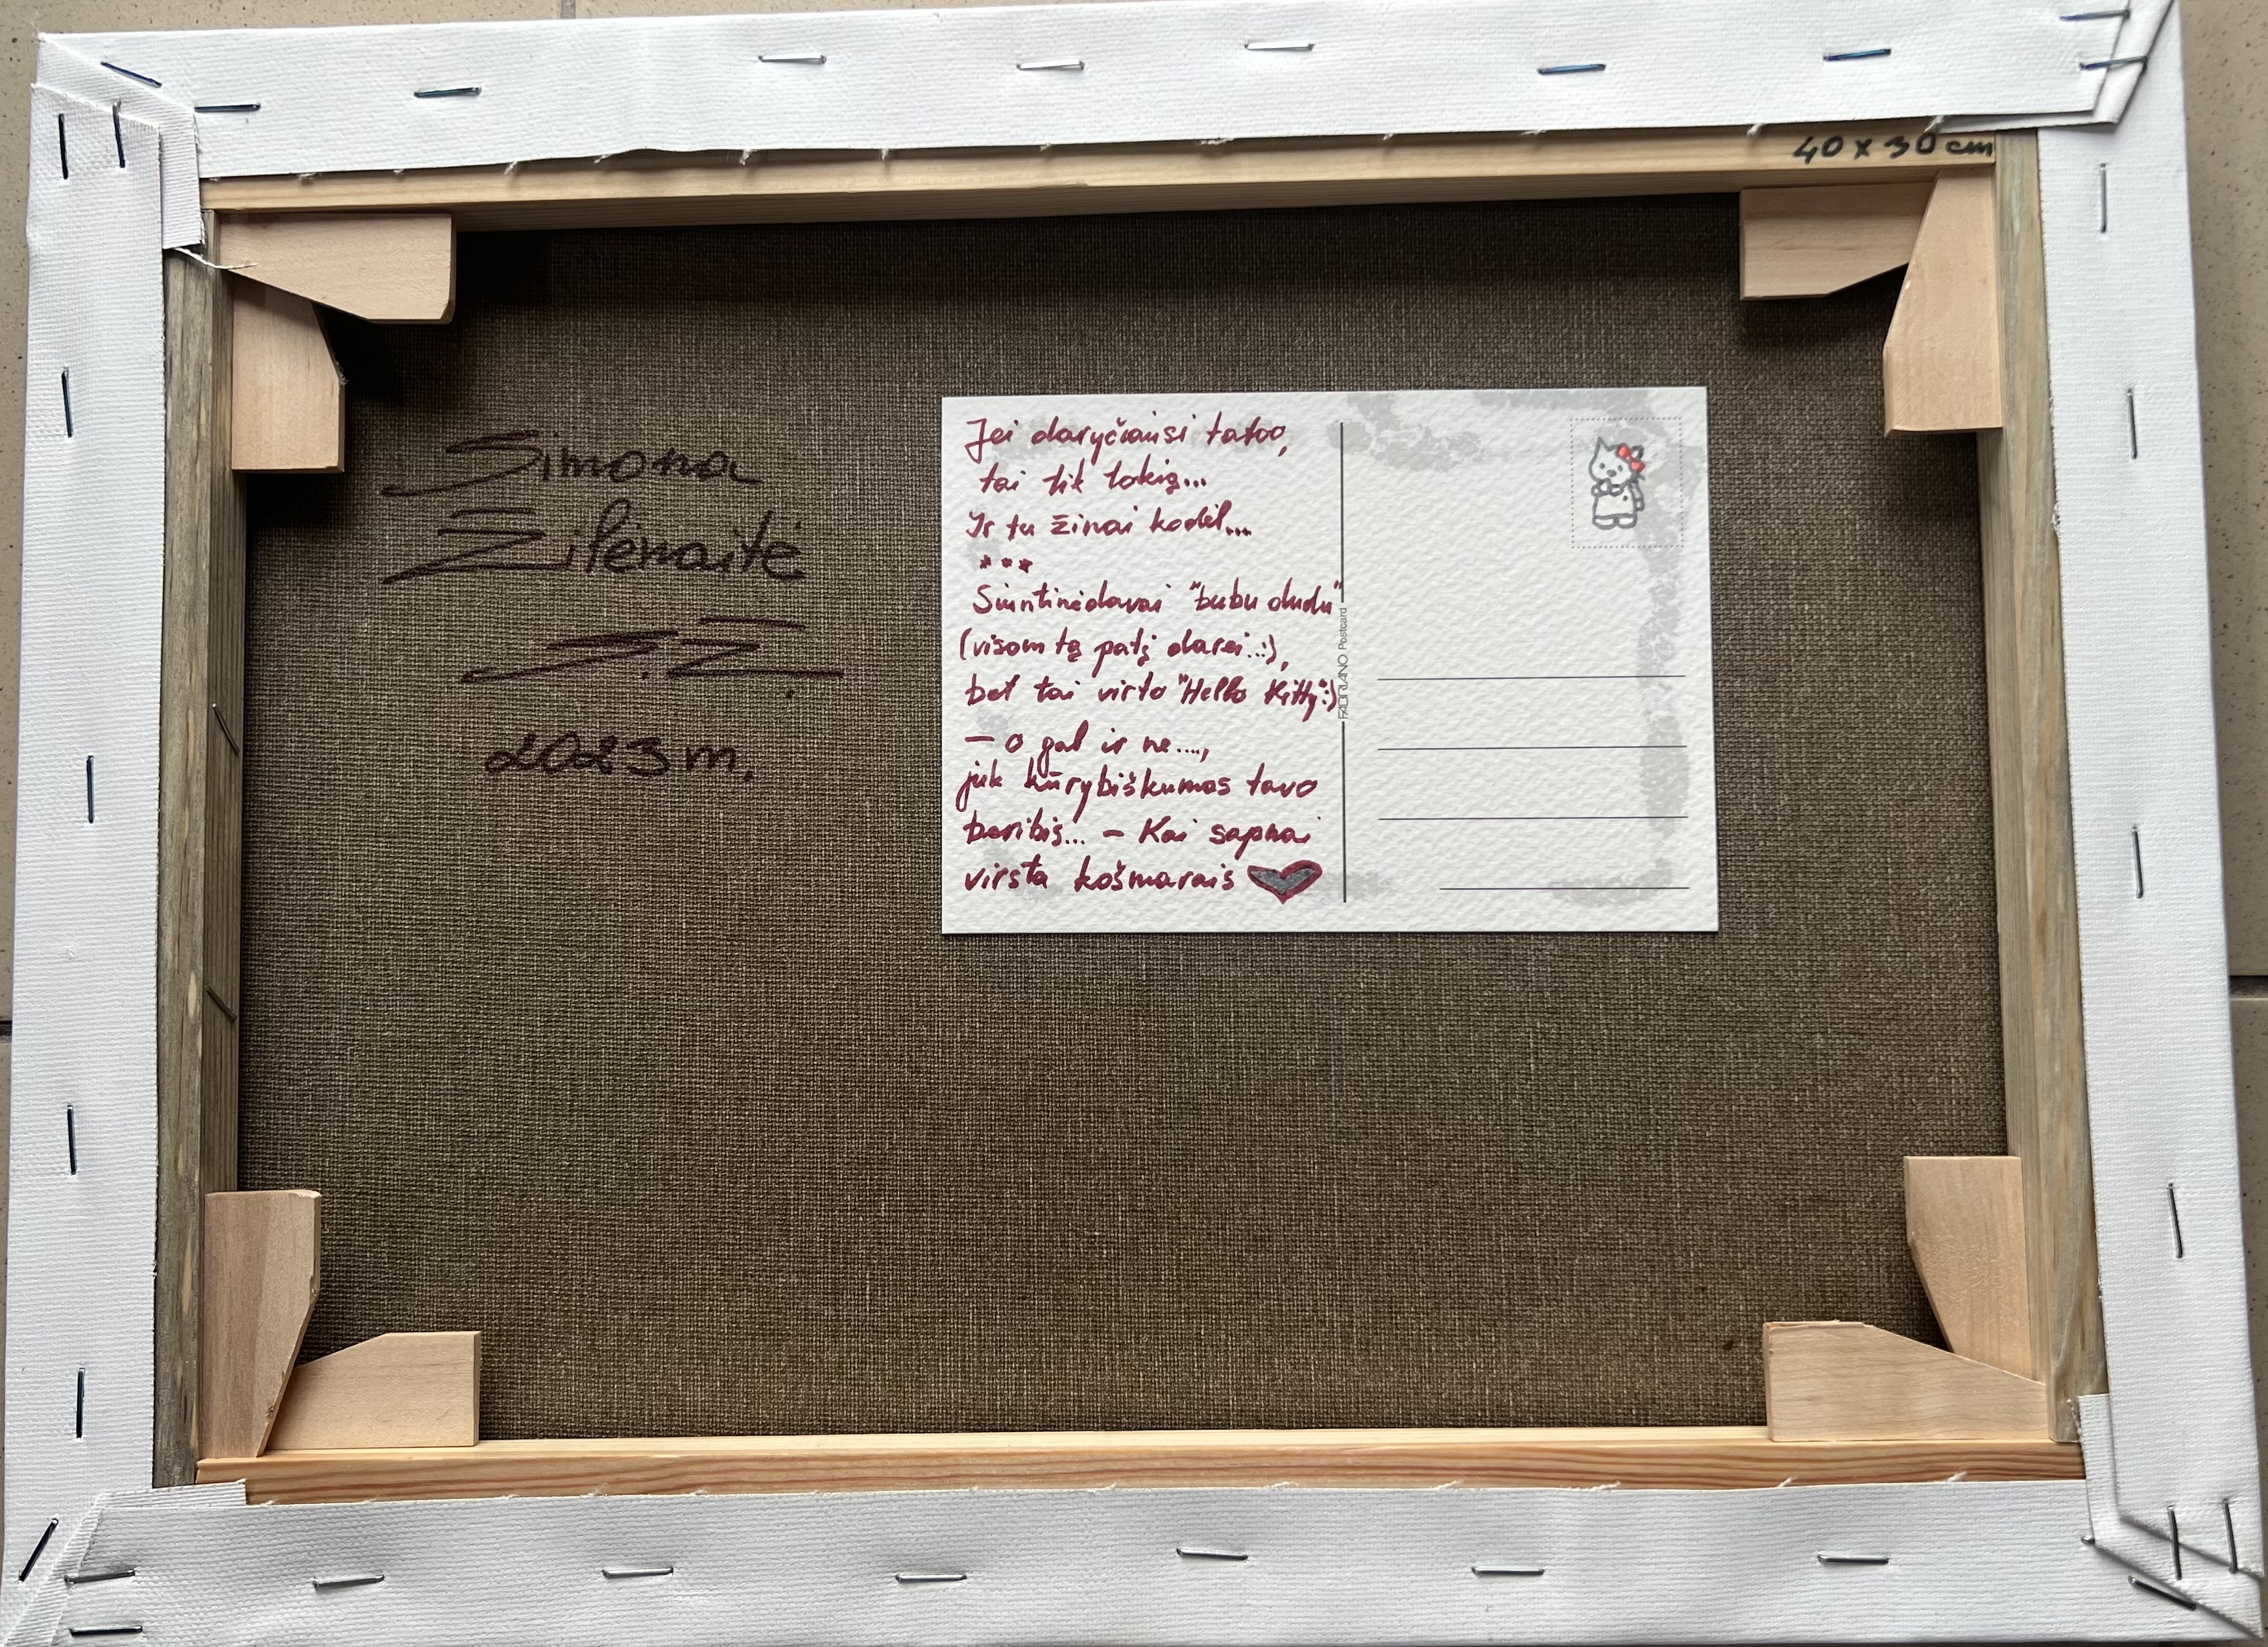 40 x 30 cm
Simona
Žilėnaitė
S.Ž.
2023 m.
Jei daryčiausi tatoo,
tai tik tokią...
Ir tu žinai kodėl...
***
Siuntinėdavai "bubu dudu"
(visom tą patį darei..:),
bet tai virto "Hello Kitty":)
– o gal ir ne....,
juk kūrybiškumas tavo
beribis... – Kai sapnai
virsta košmarais
FABRIANO Postcard